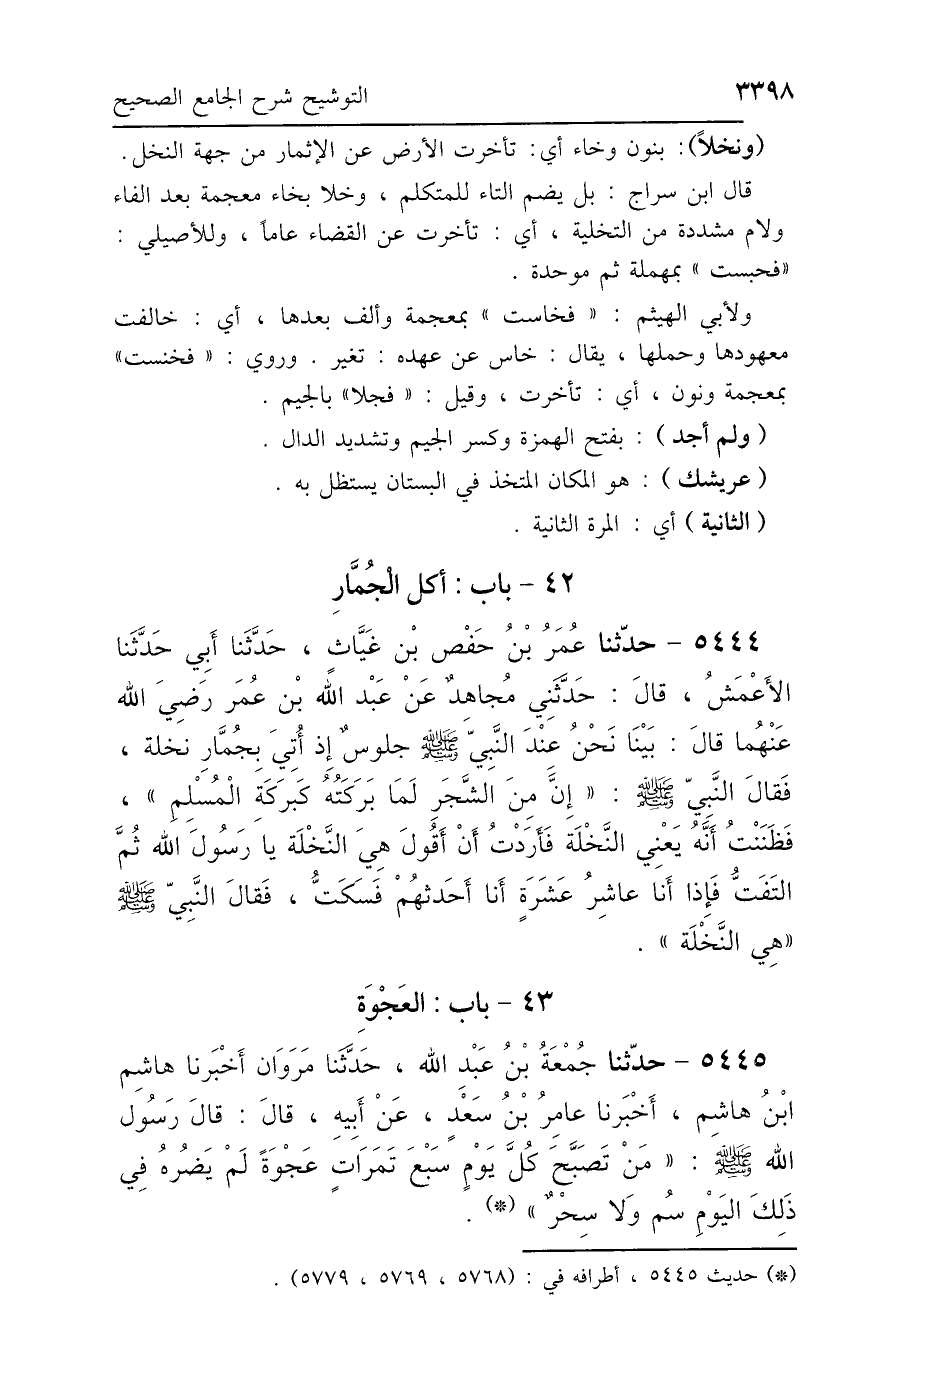 ٣٣٩٨ التوشيح شرح الجامع الصحيح
(ونخلاً): بنون وخاء أي: تأخرت الأرض عن الإثمار من جهة النخل.
قال ابن سراج : بل يضم التاء للمتكلم ، وخلا بخاء معجمة بعد الفاء
ولام مشددة من التخلية ، أي : تأخرت عن القضاء عاماً ، وللأصيلي :
«فحبست » بمهملة ثم موحدة .
ولأبي الهيثم : « فخاست » بمعجمة وألف بعدها ، أي : خالفت
معهودها وحملها ، يقال : خاس عن عهده : تغير . وروي : « فخنست»
بمعجمة ونون ، أي : تأخرت ، وقيل : « فجلا» بالجيم .
( ولم أجد ) : بفتح الهمزة وكسر الجيم وتشديد الدال .
( عريشك ) : هو المكان المتخذ في البستان يستظل به .
( الثانية ) أي : المرة الثانية .
٤٢ - باب : أكل الْجُمَّارِ
٥٤٤٤ - حدّثنا عُمَرُ بْنُ حَفْصِ بْنِ غَيَّاثٍ ، حَدَّثَنا أَبي حَدَّثَنا
الأَعْمَشُ ، قالَ : حَدَّثَنِي مُجاهِدٌ عَنْ عَبْدِ اللهِ بْنِ عُمَر رَضِيَ الله
عَنْهُما قالَ : بَيْنَا نَحْنُ عِنْدَ النَّبِيّ ﷺ جلوسٌ إِذ أُتِيَ بِجُمَّارِ نخلة ،
فَقالَ النَّبِيّ ﷺ : « إِنَّ مِنَ الشَّجَرِ لَمَا بَرَكَتُهُ كَبَرَكَةِ الْمُسْلِمِ » ،
فَظَنَنْتُ أَنَّهُ يَعْنِي النَّخْلَةَ فَأَرَدْتُ أَنْ أَقُولَ هِيَ النَّخْلَة يا رَسُولَ الله ثُمَّ
التَفَتُّ فَإِذا أَنا عاشِرُ عَشَرَةٍ أَنا أَحَدثهُمْ فَسَكَتُّ ، فَقالَ النَّبِيّ ﷺ
«هِي النَّخْلَة » .
٤٣ - باب : العَجْوَةِ
٥٤٤٥ - حدّثنا جُمْعَةُ بْنُ عَبْدِ الله ، حَدَّثَنا مَرَوَان أَخْبَرَنا هاشِم
ابْنُ هاشِم ، أَخْبَرنا عامِرُ بْنُ سَعْدٍ ، عَنْ أَبِيهِ ، قالَ : قالَ رَسُول
الله ﷺ : « مَنْ تَصَبَّحَ كُلَّ يَوْمٍ سَبْعَ تَمَرَاتٍ عَجْوَةً لَمْ يَضُرهُ فِي
ذَلِكَ اليَوْمِ سُم وَلا سِحْرٌ » (*) .
(*) حديث ٥٤٤٥ ، أطرافه في : (٥٧٦٨ ، ٥٧٦٩ ، ٥٧٧٩) .